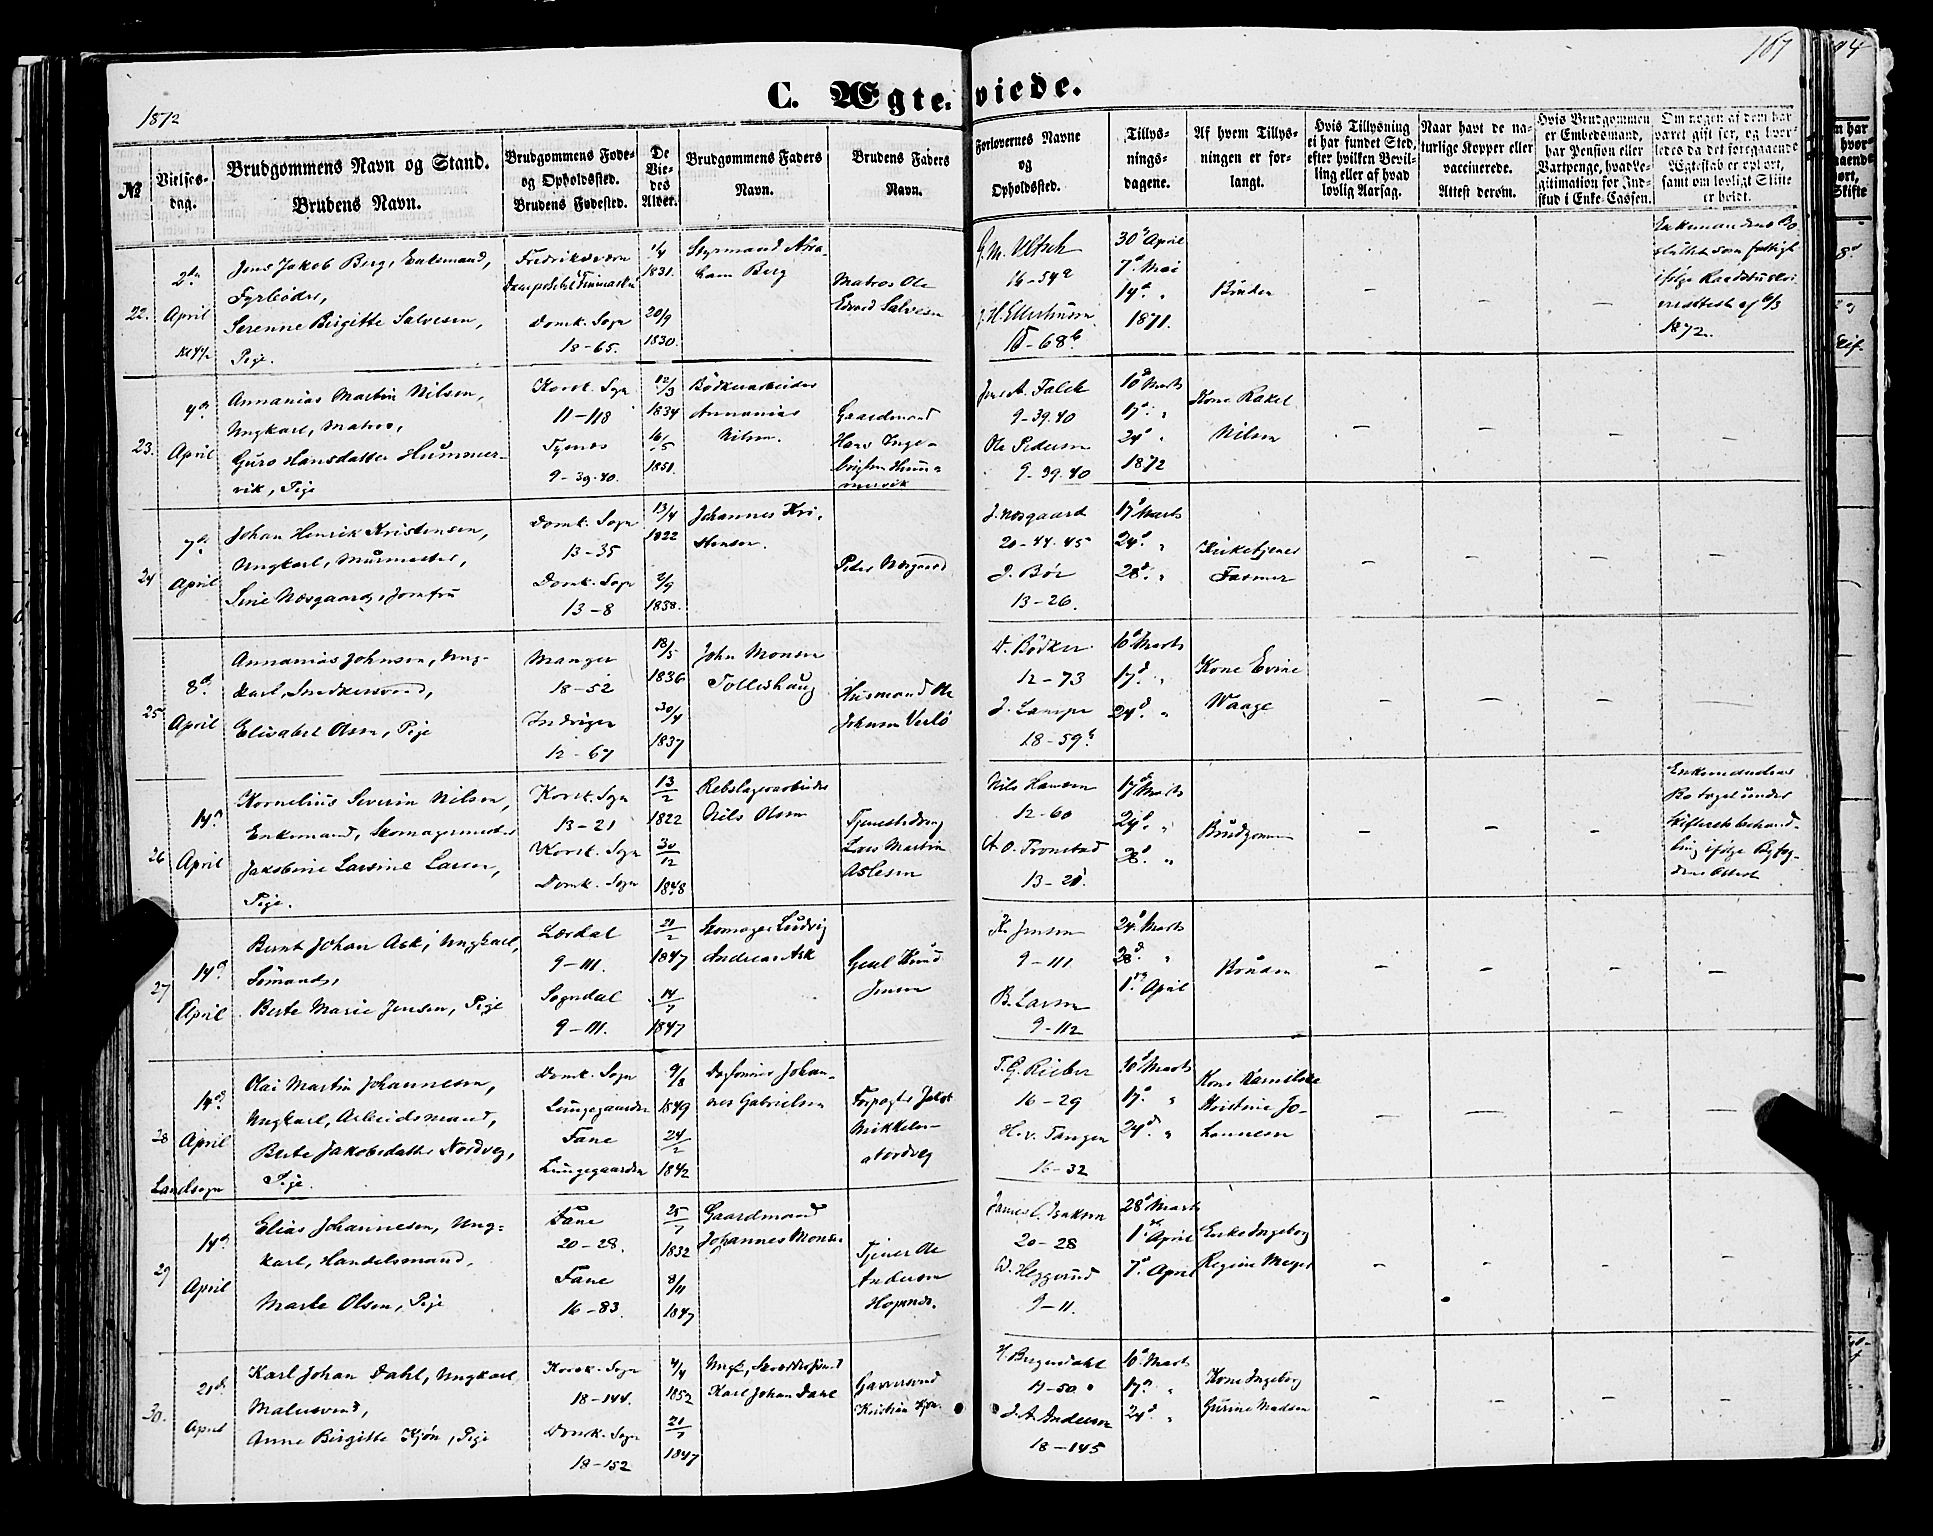 167
1872
C. Ægteviede.
№
Vielses-
dag.
Brudgommens Navn og Stand.
Brudens Navn.
Brudgommens Føde-
og Opholdssted.
Brudens Fødested.
De
Vie-
des
Alder.
Brudgommens Faders
Navn.
Brudens Faders
Navn.
Forlovernes Navne
og
Opholdssted.
Tillys-
nings-
dagene.
Af hvem Tillys-
ningen er for-
langt.
Hvis Tillysning
ei har fundet Sted,
efter hvilken Bevil-
ling eller af hvad
lovlig Aarsag.
Naar havt de na-
turlige Kopper eller
vaccinerede.
Attest derom.
Hvis Brudgommen
er Embedsmand,
har Pension eller
Vartpenge, hvad Le-
gitimation for Ind-
skud i Enke-Cassen.
Om nogen af dem har
været gift før, og hvor-
ledes da det foregaaende
Ægteskab er opløst,
samt om lovligt Skifte
er holdt.
22.
2den
April
Kl 4½
Jens Jakob Berg, Enkemand,
Fyrbøder,
Serenne Birgitte Salvesen,
Pige.
Fredriksværn
Domk. Sogn
18-65.
1831.
20/9
1830.
Styrmand Abra-
ham Berg
Matros Ole
Edvard Salvesen
16-54a
15-68b
30d April
7d Mai
14d „
1871.
Bruden
1872.
23.
4d
April
Annanias Martin Nilsen,
Ungkarl, Matros,
Guro Hansdatter Hummer-
vik, Pige
Korsk. Sogn
11-118
Tysnes
9-39.40.
12/3
1834
16/5
1851.
Bødkerarbeider
Annanias
Nilsen.
Gaardmand
Hans Inge-
brigtsen Hum-
mervik
Jens A. Falck
9-39.40
Ole Pedersen
9-39.40
10d Marts
17d „
24d „
1872
Kone Rakel
Nilsen
24
7d
April
Johan Henrik Kristensen,
Ungkarl, Murmester,
Sine Næsgaard, Jomfru
Domk. Sogn
13-35
Domk. Sogn
13-8
13/4
1822
2/9
1838.
Johannes Kri-
stensen.
Peder Næsgaard
J. Næsgaard
20-44.45
J. Bør
13-26.
17d Marts
24d „
28d „
Kirketjener
Fasmer
25
8d
April
Annanias Johnsen, Ung-
karl, Snedkersvend,
Elisabet Olsen, Pige
Manger
18-52
Indvigen
12-67
18/5
1836
30/4
1837
John Monsen
Tolleshaug
Husmand Ole
Johnsen
A. Bødker
12-73
J. Lampe
18-59b
10d Marts
17d „
24d „
Kone Evine
Waage
26
14d
April
Kornelius Severin Nilsen,
Enkemand, Skomagermester
Jakobine Larsine Larsen,
Pige.
Korsk. Sogn
13-21
Korsk. Sogn
Domk. Sogn
13/2
1822
30/12
1848
Rebslagerarbeider
Nils Olsen
Tjenestedreng
Lars Martin
Aslesen
Nils Hansen
12-60
A. O. Tronstad
13-21.
17d Marts
24d „
28d „
Brudgommen
Enkemandens
Bo taget under
Skifterets behand-
ling ifølge Byfog-
dens Attest
27
14d
April
Bernt Johan Ask, Ungkarl,
Sømand,
Berte Marie Jensen, Pige
Lærdal
9-111.
Sogndal
9-111.
21/2
1847
14/7
1847
Skomager Ludvig
Andreas Ask
Knud
Jensen
Jensen
9-111
B. Larsen
9-112
24d Marts
28d „
1ste April
Bruden
28
14d
April
Landsogn
Olai Martin Johannesen,
Ungkarl, Arbeidsmand,
Berte Jakobsdatter Nordveg,
Pige.
Domk. Sogn
Lungegaarden
Fane
Lungegaarden
9/8
1849
24/2
1842
Johan-
nes Gabrielsen
Forpagter Jakob
Mikkelsen
Nordveg
T. G. Rieber
16-29
H. v. Tangen
16-32
10d Marts
17d „
24d „
Kristine Jo-
hannesen
29
14d
April
Elias Johannesen, Ung-
karl, Handelsmand,
Marte Olsen, Pige
Fane
20-28.
Fane
16-83.
25/7
1832
8/11
1847
Gaardmand
Johannes Monsen
Tjener Ole
Andersen
20-28
9-11.
28d Marts
1ste April
7d April
Enke Ingeborg
Regine Meyer
30.
21d
April
Karl Johan Dahl, Ungkarl
Malersvend,
Anne Birgitte Kjøn, Pige
Korsk. Sogn
18-144.
Domk. Sogn
18-152
4/4
1852
21/7
1847
Karl Johan Dahl
Garversvend
Kristian Kjøn
H. Bergendahl
17-50
J. A. Andersen
18-145
10d Marts
17d „
24d „
Kone Ingeborg
Gurine Madsen